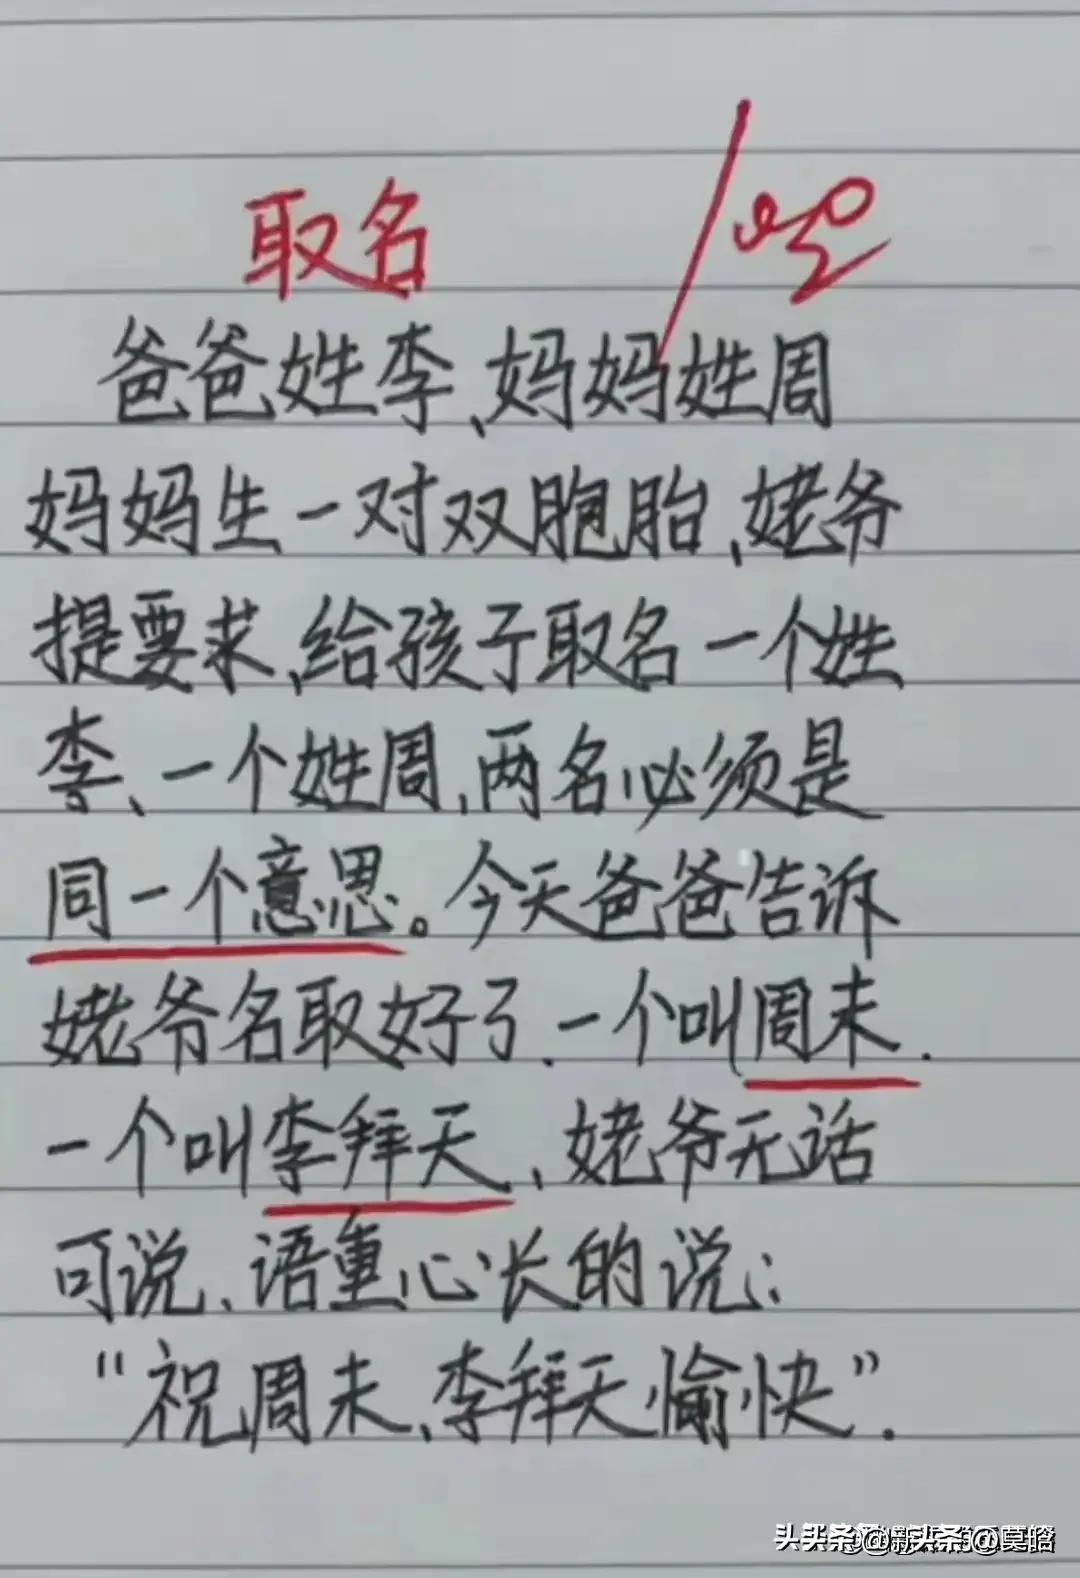 取名
爸爸姓李、妈妈姓周
妈妈生一对双胞胎、姥爷
提要求、给孩子取名一个姓
李、一个姓周,两名必须是
同一个意思。今天爸爸告诉
姥爷名取好了.一个叫周末.
一个叫李拜天、姥爷无话
可说、语重心长的说:
“祝周末、李拜天愉快”.
头条@